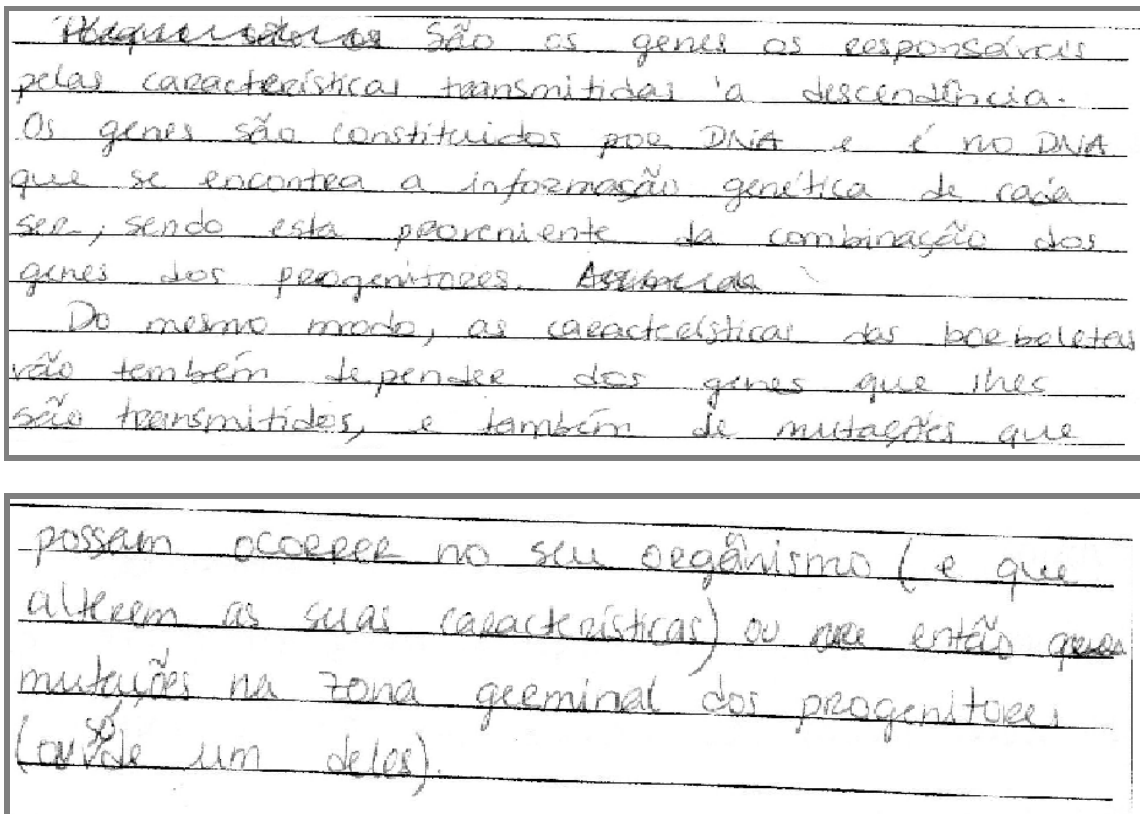 São os genes os responsáveis
pelas características transmitidas 'a descendência.
Os genes são constituidos por DNA e é no DNA
que se encontra a informação genética de cada
ser, sendo esta proveniente da combinação dos
genes dos progenitores.
Do mesmo modo, as características das borboletas
vão também depender dos genes que lhes
são transmitidos, e também de mutações que
possam ocorrer no seu orgânismo (e que
alterem as suas características) ou então
mutações na zona germinal dos progenitores
(ou só de um deles).